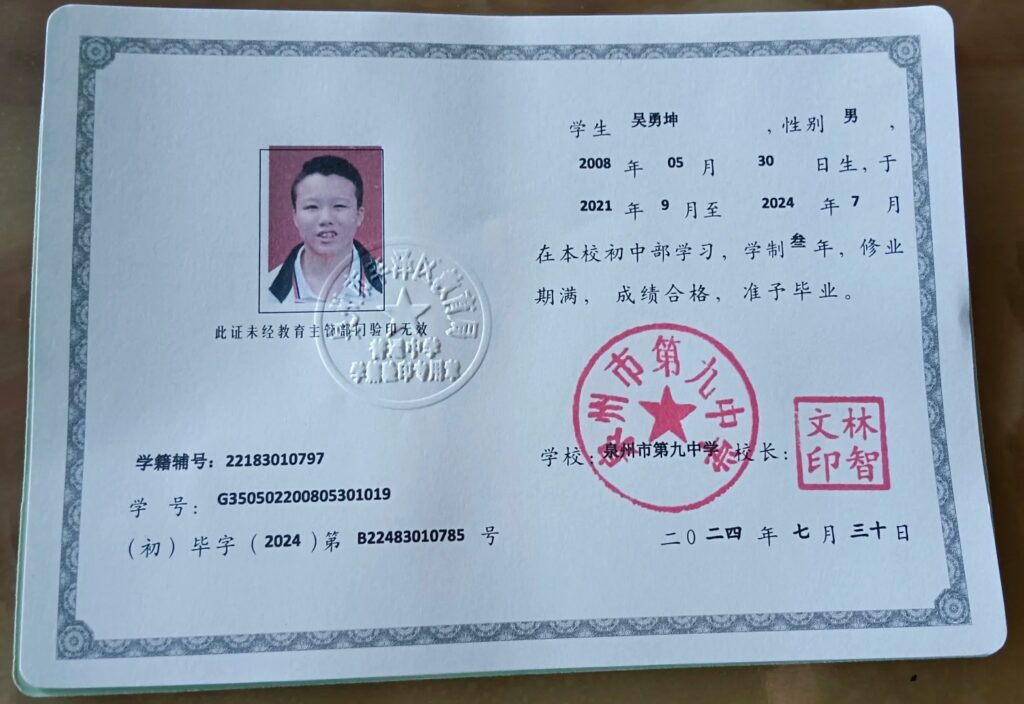 此证未经教育主管部门验印无效
普通中学
学籍验印专用章
学籍辅号：22183010797
学 号：G350502200805301019
（初）毕字（2024）第 B22483010785 号
学生 吴勇坤 ，性别 男 ，
2008 年 05 月 30 日生，于
2021 年 9 月至 2024 年 7 月
在本校初中部学习，学制叁年，修业
期满， 成绩合格， 准予毕业。
泉州市第九中学
学校：泉州市第九中学 校长：
林智
文印
二0二四 年 七 月 三十 日